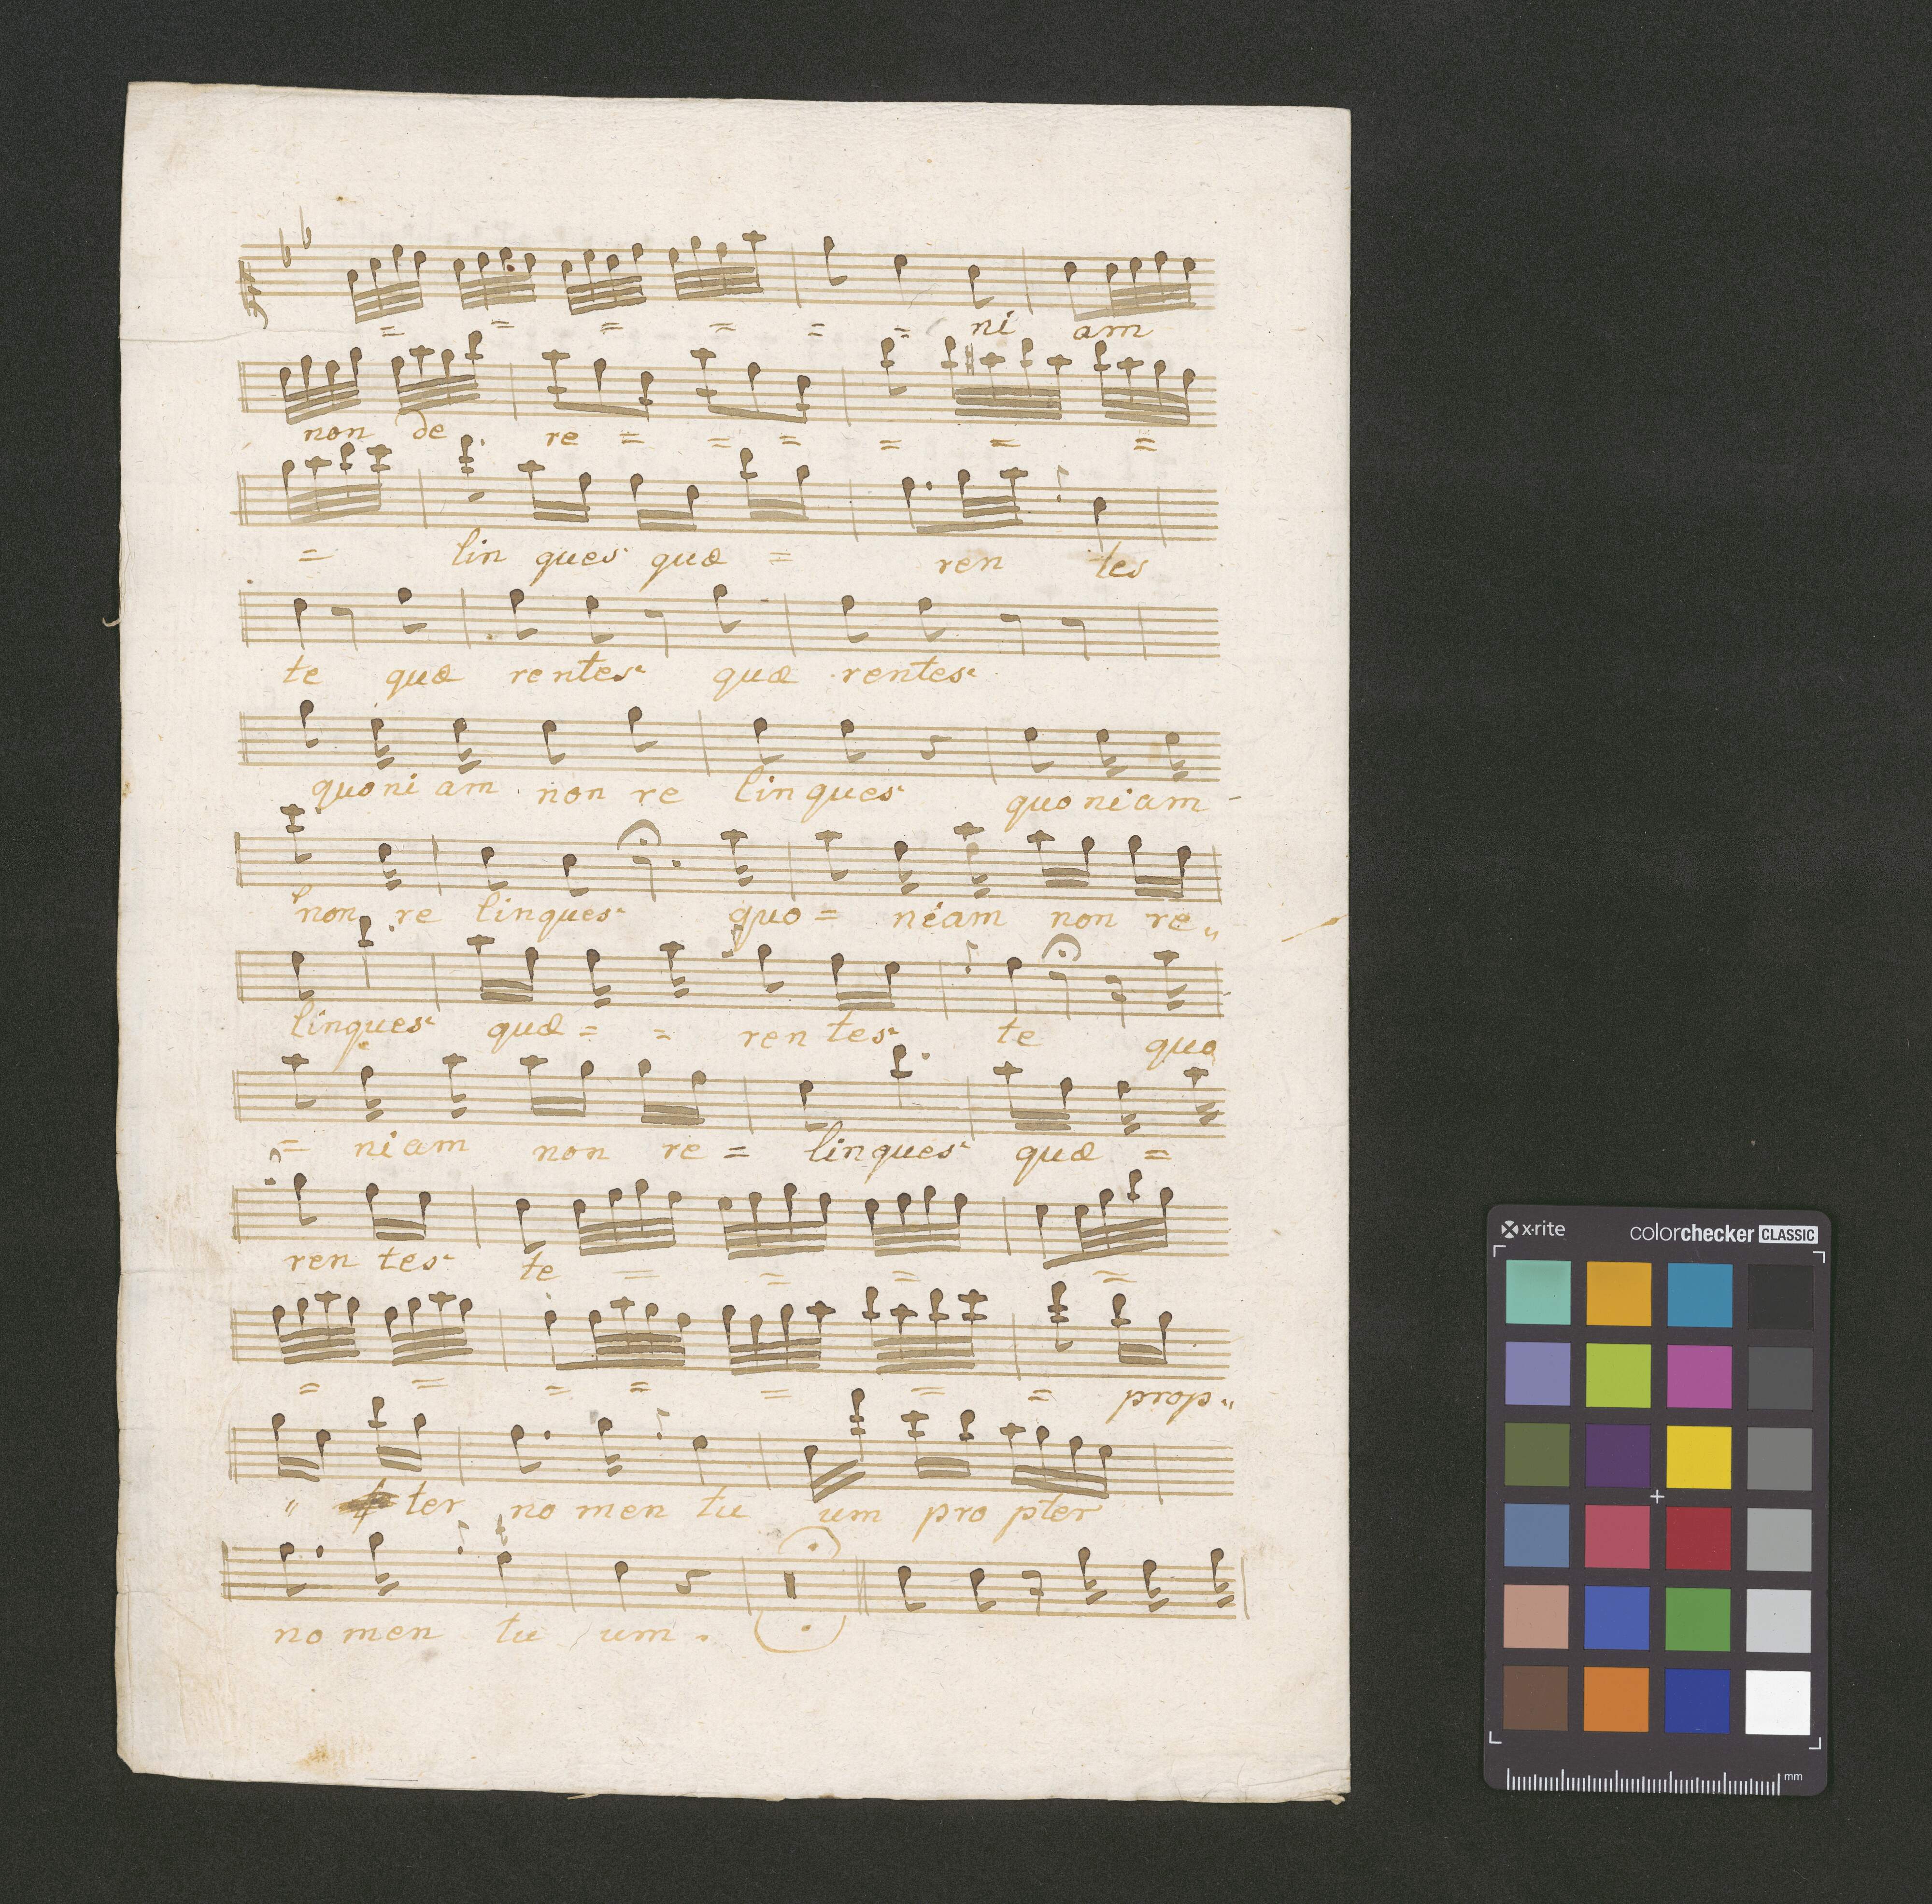 = = = = = = ni am
non de re = = = = = =
= lin ques quæ = ren tes
te quæ rentes quæ rentes
quoni am non re linques quoniam -
non re linques quo = niam non re„
linques quæ = = ren tes te quo
= niam non re = linques quæ =
ren tes te = = = =
= = = = = = = prop„
„ ter no men tu um pro pter
no men tu um .
x·rite colorchecker CLASSIC
mm